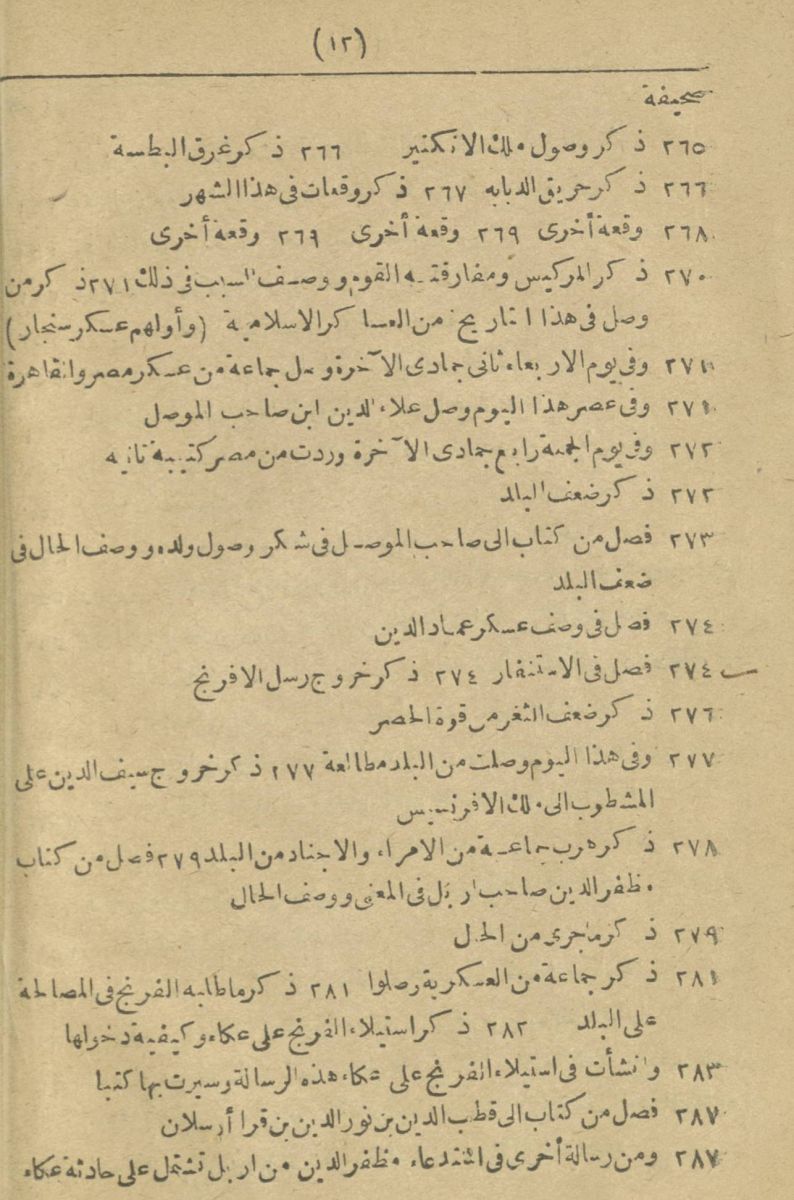 (١٢)
صحيفة
٢٦٥ ذكر وصول ملك الانكتير ٢٦٦ ذكر غرق البطسة
٢٦٦ ذكر حريق الدبابه ٢٦٧ ذكر وقعات فى هذا الشهر
٢٦٨ وقعة أخرى ٢٦٩ وقعة أخرى ٢٦٩ وقعة أخرى
٢٧٠ ذكر المركيس ومفارقته القوم ووصف السبب فى ذلك ٢٧١ ذكر من
وصل فى هذا التاريخ من العساكر الاسلامية (وأولهم عسكر سنجار)
٢٧١ وفى يوم الاربعاء ثانى جمادى الآخرة وصل جماعة من عسكر مصر والقاهرة
٢٧١ وفى عصر هذا اليوم وصل علاء الدين ابن صاحب الموصل
٢٧٢ وفى يوم الجمعة رابع جمادى الآخرة وردت من مصر كتيبة ثانيه
٢٧٢ ذكر ضعف البلد
٢٧٣ فصل من كتاب الى صاحب الموصل فى شكر وصول ولده ووصف الحال فى
ضعف البلد
٢٧٤ فصل فى وصف عسكر عماد الدين
٢٧٤ فصل فى الاستنفار ٢٧٤ ذكر خروج رسل الافرنج
٢٧٦ ذكر ضعف الثغر من قوة الحصر
٢٧٧ وفى هذا اليوم وصلت من البلد مطالعة ٢٧٧ ذكر خروج سيف الدين على
المشطوب الى ملك الافرنسيس
٢٧٨ ذكر هرب جماعة من الامراء والاجناد من البلد ٢٧٩ فصل من كتاب
مظفر الدين صاحب اربل فى المعنى ووصف الحال
٢٧٩ ذكر ماجرى من الحال
٢٨١ ذكر جماعة من العسكرية وصلوا ٢٨١ ذكر ماطلبه الفرنج فى المصالحة
على البلد ٢٨٢ ذكر استيلاء الفرنج على عكاء وكيفية دخولها
٢٨٣ وانشأت فى استيلاء الفرنج على عكاء هذه الرسالة وسيرت بها كتبا
٢٨٧ فصل من كتاب الى قطب الدين بن نور الدين بن قرا أرسلان
٢٨٧ ومن رسالة أخرى فى استدعاء مظفر الدين من اربل تشتمل على حادثة عكاء